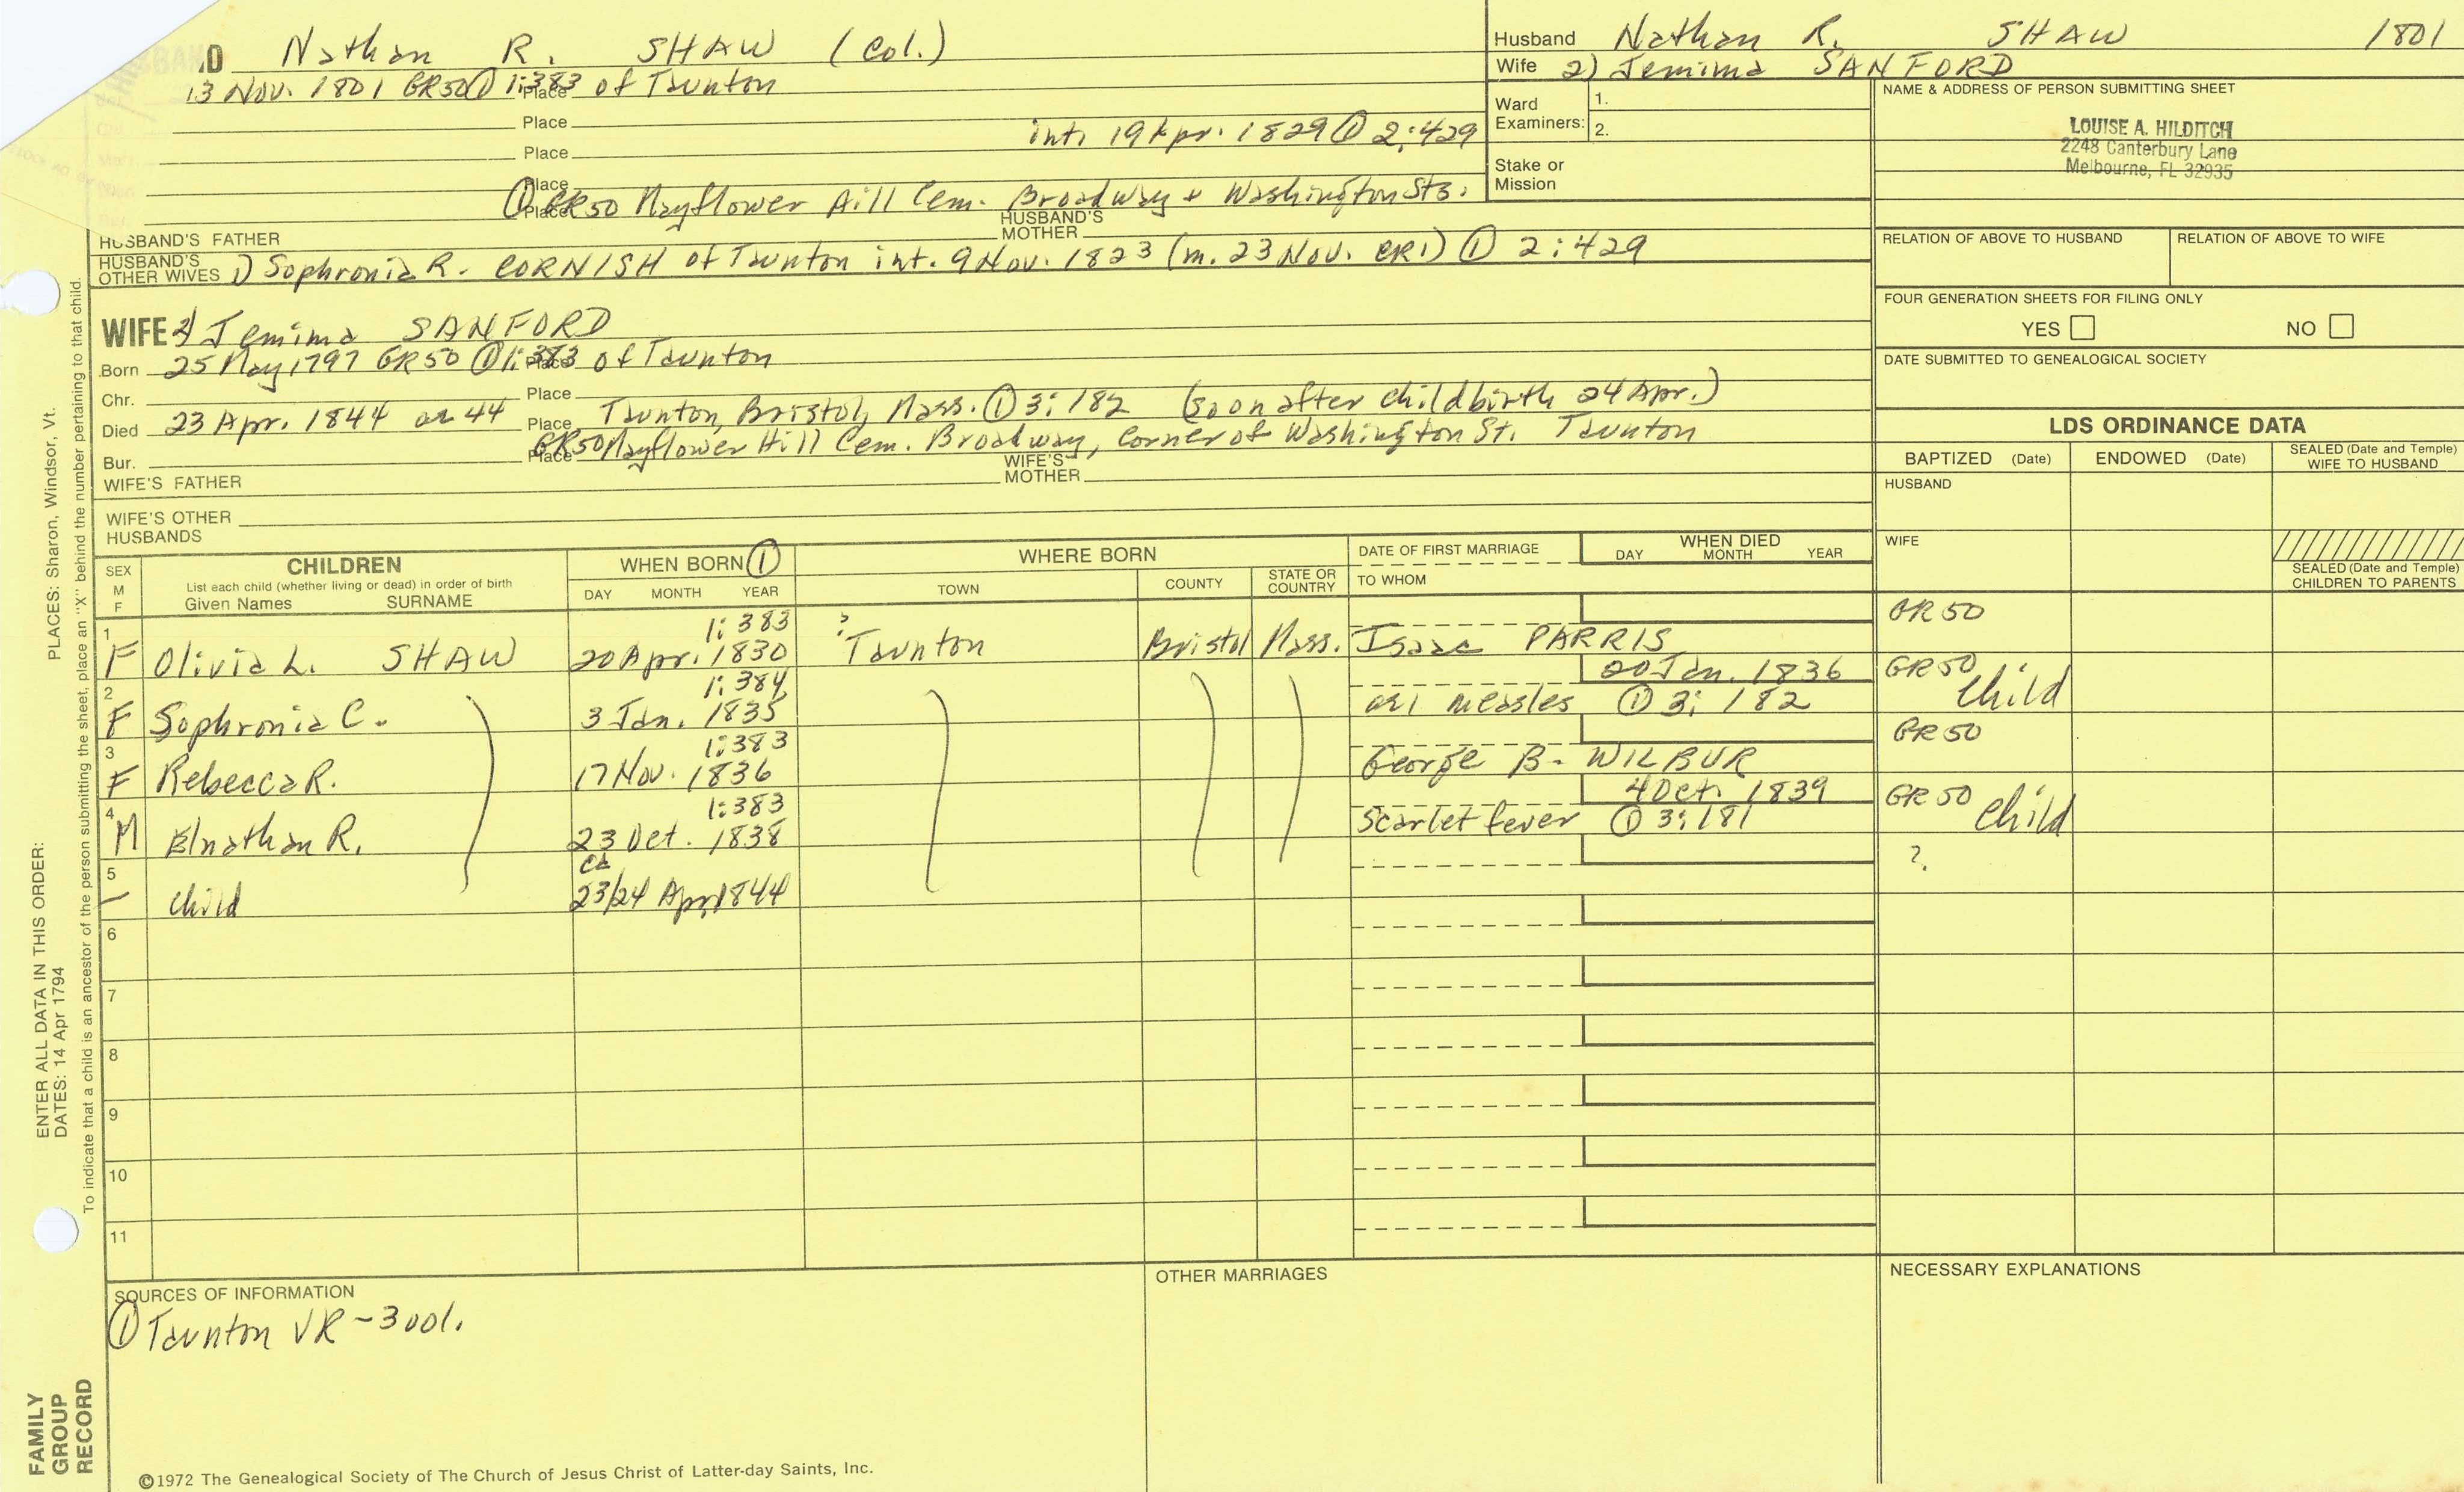 HUSBAND Nathan R. SHAW (Col.)
13 Nov. 1801 GR50 ① 1:383 Place of Taunton
Place
int. 19 Apr. 1829 ① 2:429
Place
Place
① GR50 Mayflower Hill Cem. Broadway + Washington Sts.
Place
HUSBAND'S FATHER
HUSBAND'S MOTHER
HUSBAND'S OTHER WIVES 1) Sophronia R. CORNISH of Taunton int. 9 Nov. 1823 (m. 23 Nov. CR1) ① 2:429
WIFE 2) Jemima SANFORD
Born 25 May 1797 GR50 ① 1:383 Place of Taunton
Chr. Place
Died 23 Apr. 1844 ae 44 Place Taunton, Bristol, Mass. ① 3:182 (soon after childbirth 24 Apr.)
Bur. Place GR50 Mayflower Hill Cem. Broadway, Corner of Washington St. Taunton
WIFE'S FATHER
WIFE'S MOTHER
WIFE'S OTHER HUSBANDS
Husband Nathan R. SHAW 1801
Wife 2) Jemima SANFORD
Ward Examiners: 1.
2.
Stake or Mission
NAME & ADDRESS OF PERSON SUBMITTING SHEET
LOUISE A. HILDITCH
2248 Canterbury Lane
Melbourne, FL 32935
RELATION OF ABOVE TO HUSBAND
RELATION OF ABOVE TO WIFE
FOUR GENERATION SHEETS FOR FILING ONLY
YES NO
DATE SUBMITTED TO GENEALOGICAL SOCIETY
LDS ORDINANCE DATA
BAPTIZED (Date) ENDOWED (Date) SEALED (Date and Temple) WIFE TO HUSBAND
HUSBAND
WIFE
SEALED (Date and Temple) CHILDREN TO PARENTS
SEX M F
CHILDREN
List each child (whether living or dead) in order of birth
Given Names SURNAME
WHEN BORN ①
DAY MONTH YEAR
WHERE BORN
TOWN COUNTY STATE OR COUNTRY
DATE OF FIRST MARRIAGE
TO WHOM
WHEN DIED
DAY MONTH YEAR
1 1:383 ? GR50
F Olivia L. SHAW 20 Apr. 1830 Taunton Bristol Mass. Isaac PARRIS
2 1:384 20 Jan. 1836 GR50 Child
F Sophronia C. 3 Jan. 1835 ae 1 measles ① 3:182
3 1:383 GR50
F Rebecca R. 17 Nov. 1836 George B. WILBUR
4 1:383 4 Oct. 1839 GR50 Child
M Elnathan R. 23 Oct. 1838 Scarlet fever ① 3:181
5 ca ?
– child 23/24 Apr 1844
6
7
8
9
10
11
SOURCES OF INFORMATION
① Taunton VR - 3 vol.
OTHER MARRIAGES
NECESSARY EXPLANATIONS
©1972 The Genealogical Society of The Church of Jesus Christ of Latter-day Saints, Inc.
FAMILY GROUP RECORD
ENTER ALL DATA IN THIS ORDER:
DATES: 14 Apr 1794
PLACES: Sharon, Windsor, Vt.
To indicate that a child is an ancestor of the person submitting the sheet, place an "X" behind the number pertaining to that child.